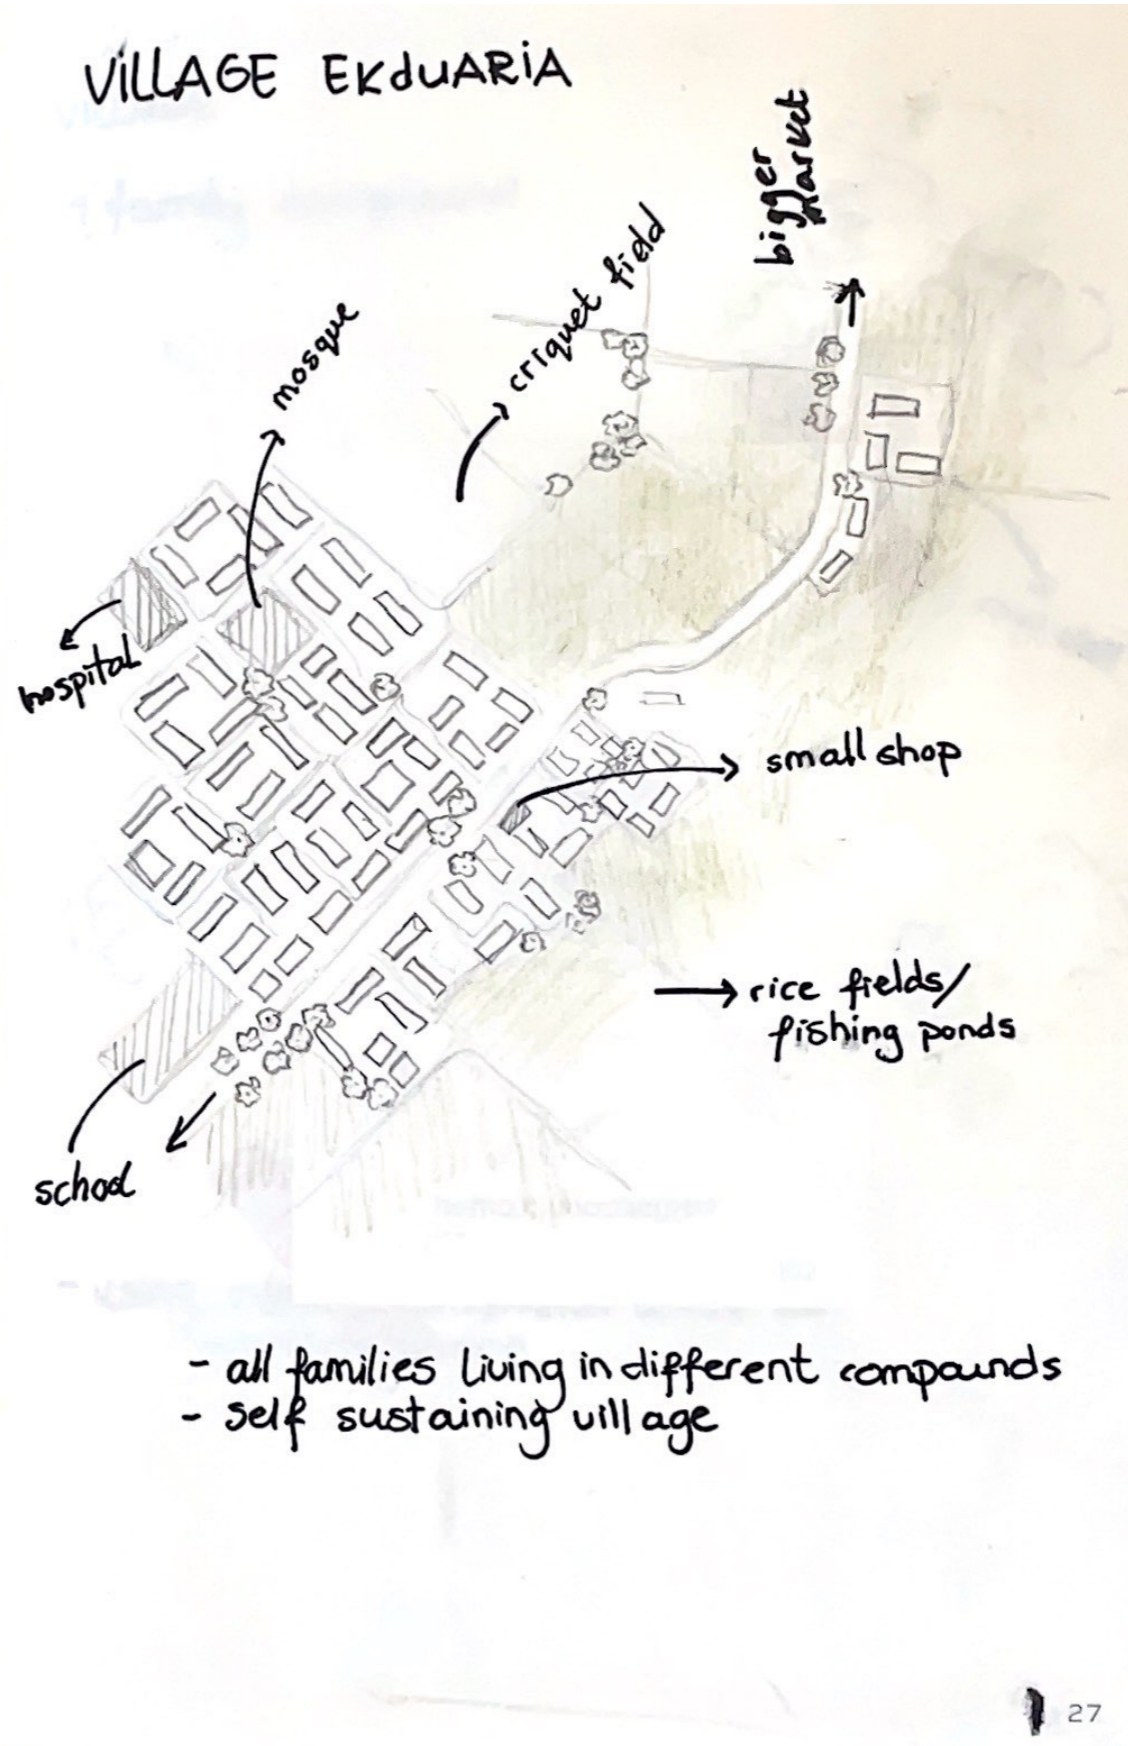 VILLAGE EKDUARIA
bigger
market
criquet field
mosque
hospital
small shop
rice fields/
fishing ponds
school
- all families living in different compounds
- self sustaining village
27